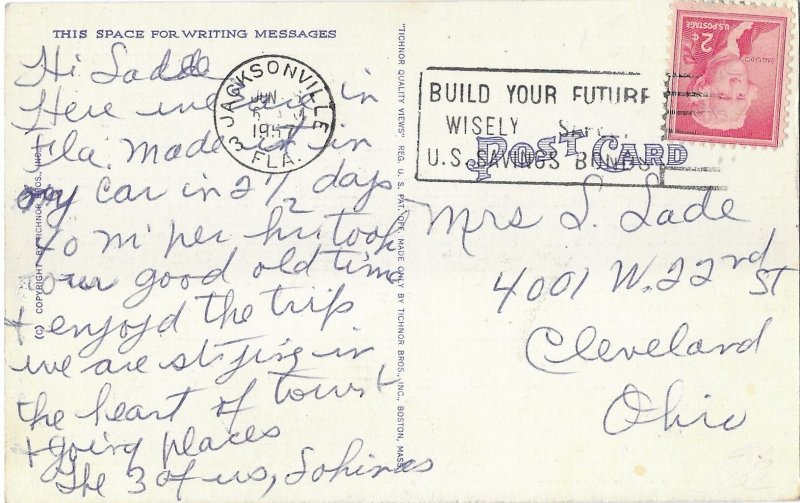 THIS SPACE FOR WRITING MESSAGES
Hi Lade
Here we are in
Fla. made it in
my car in 2 1/2 days
40 m per hr took
our good old time
+ enjoyd the trip
we are stying in
the heart of tourst
+ going places
The 3 of us,
(C) COPYRIGHT BY TICHNOR BROS., INC.
"TICHNOR QUALITY VIEWS" REG. U. S. PAT. OFF. MADE ONLY BY TICHNOR BROS., INC., BOSTON, MASS.
JACKSONVILLE
3 FLA.
JUN
1957
BUILD YOUR FUTURE
WISELY
U.S. SAVINGS BONDS
POST CARD
U.S. POSTAGE
2¢
JEFFERSON
Mrs L. Lade
4001 W. 22nd St
Cleveland
Ohio